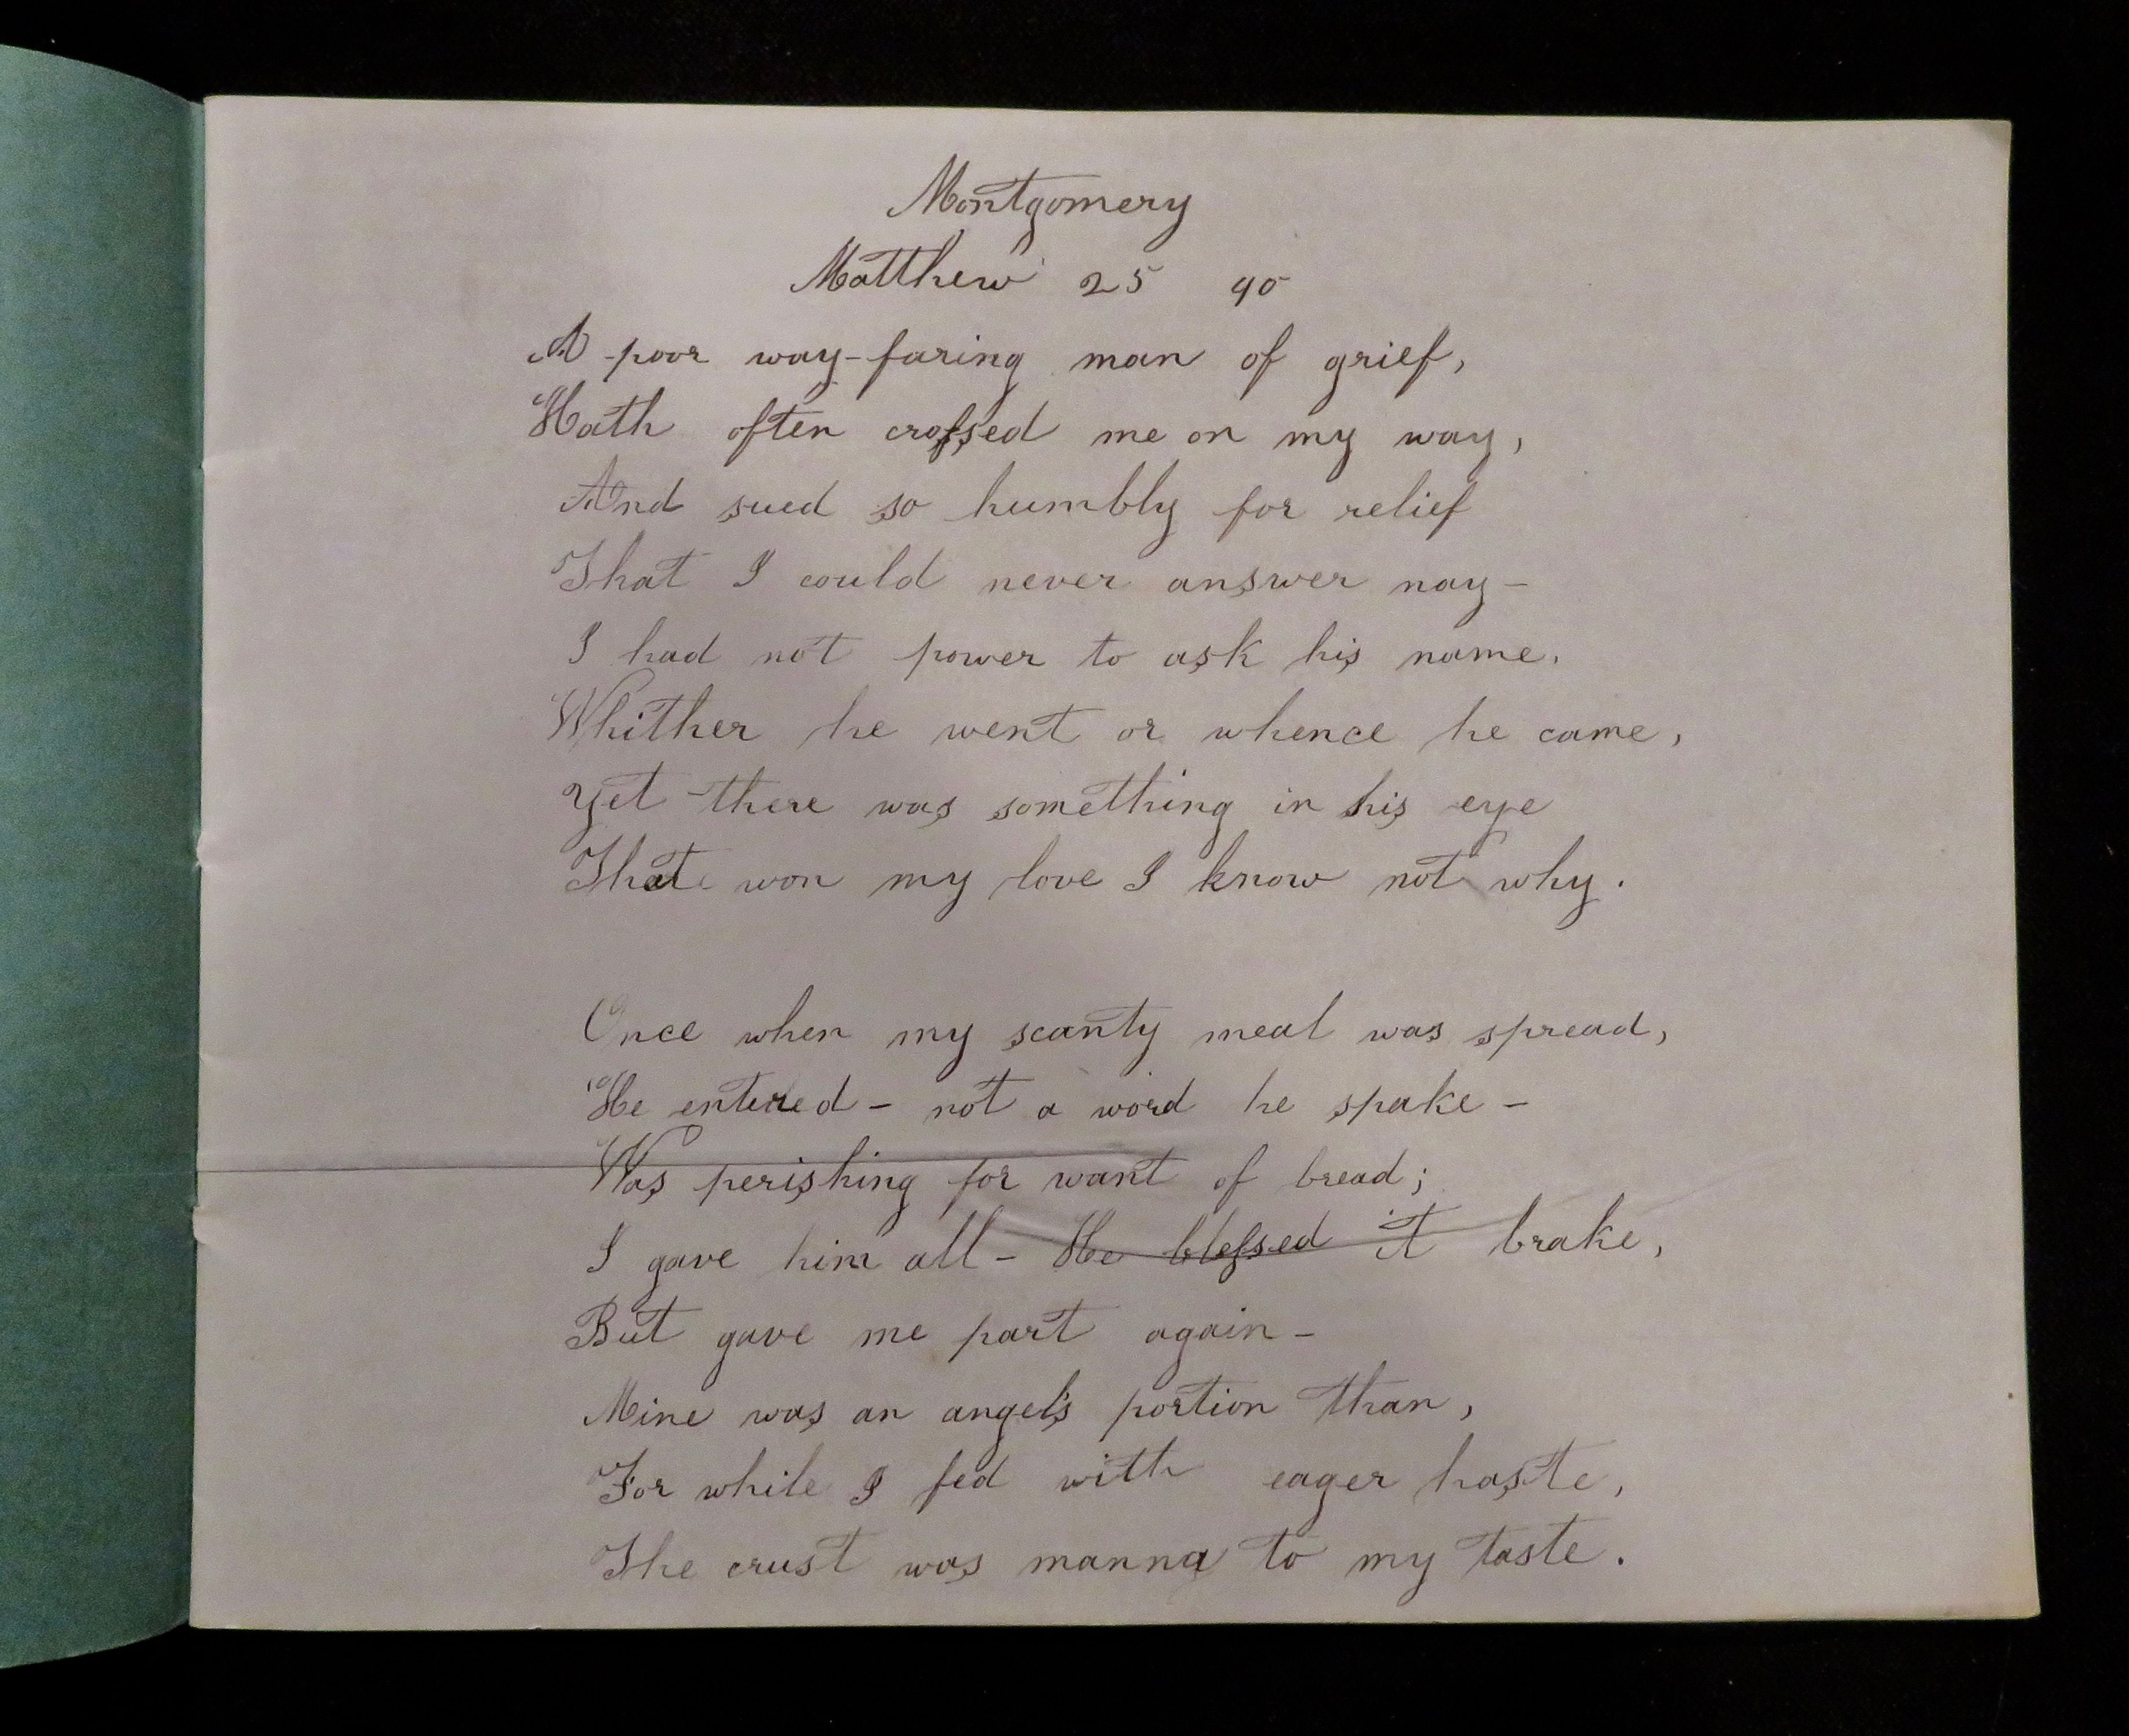 Montgomery
Matthew 25 40
A poor way-faring man of grief,
Hath often crossed me on my way,
And sued so humbly for relief
That I could never answer nay-
I had not power to ask his name.
Whither he went or whence he came,
Yet there was something in his eye
That won my love I know not why.
Once when my scanty meal was spread,
He entered - not a word he spake -
Was perishing for want of bread;
I gave him all - He blessed it brake,
But gave me part again -
Mine was an angel's portion than,
For while I fed with eager haste,
The crust was manna to my taste.